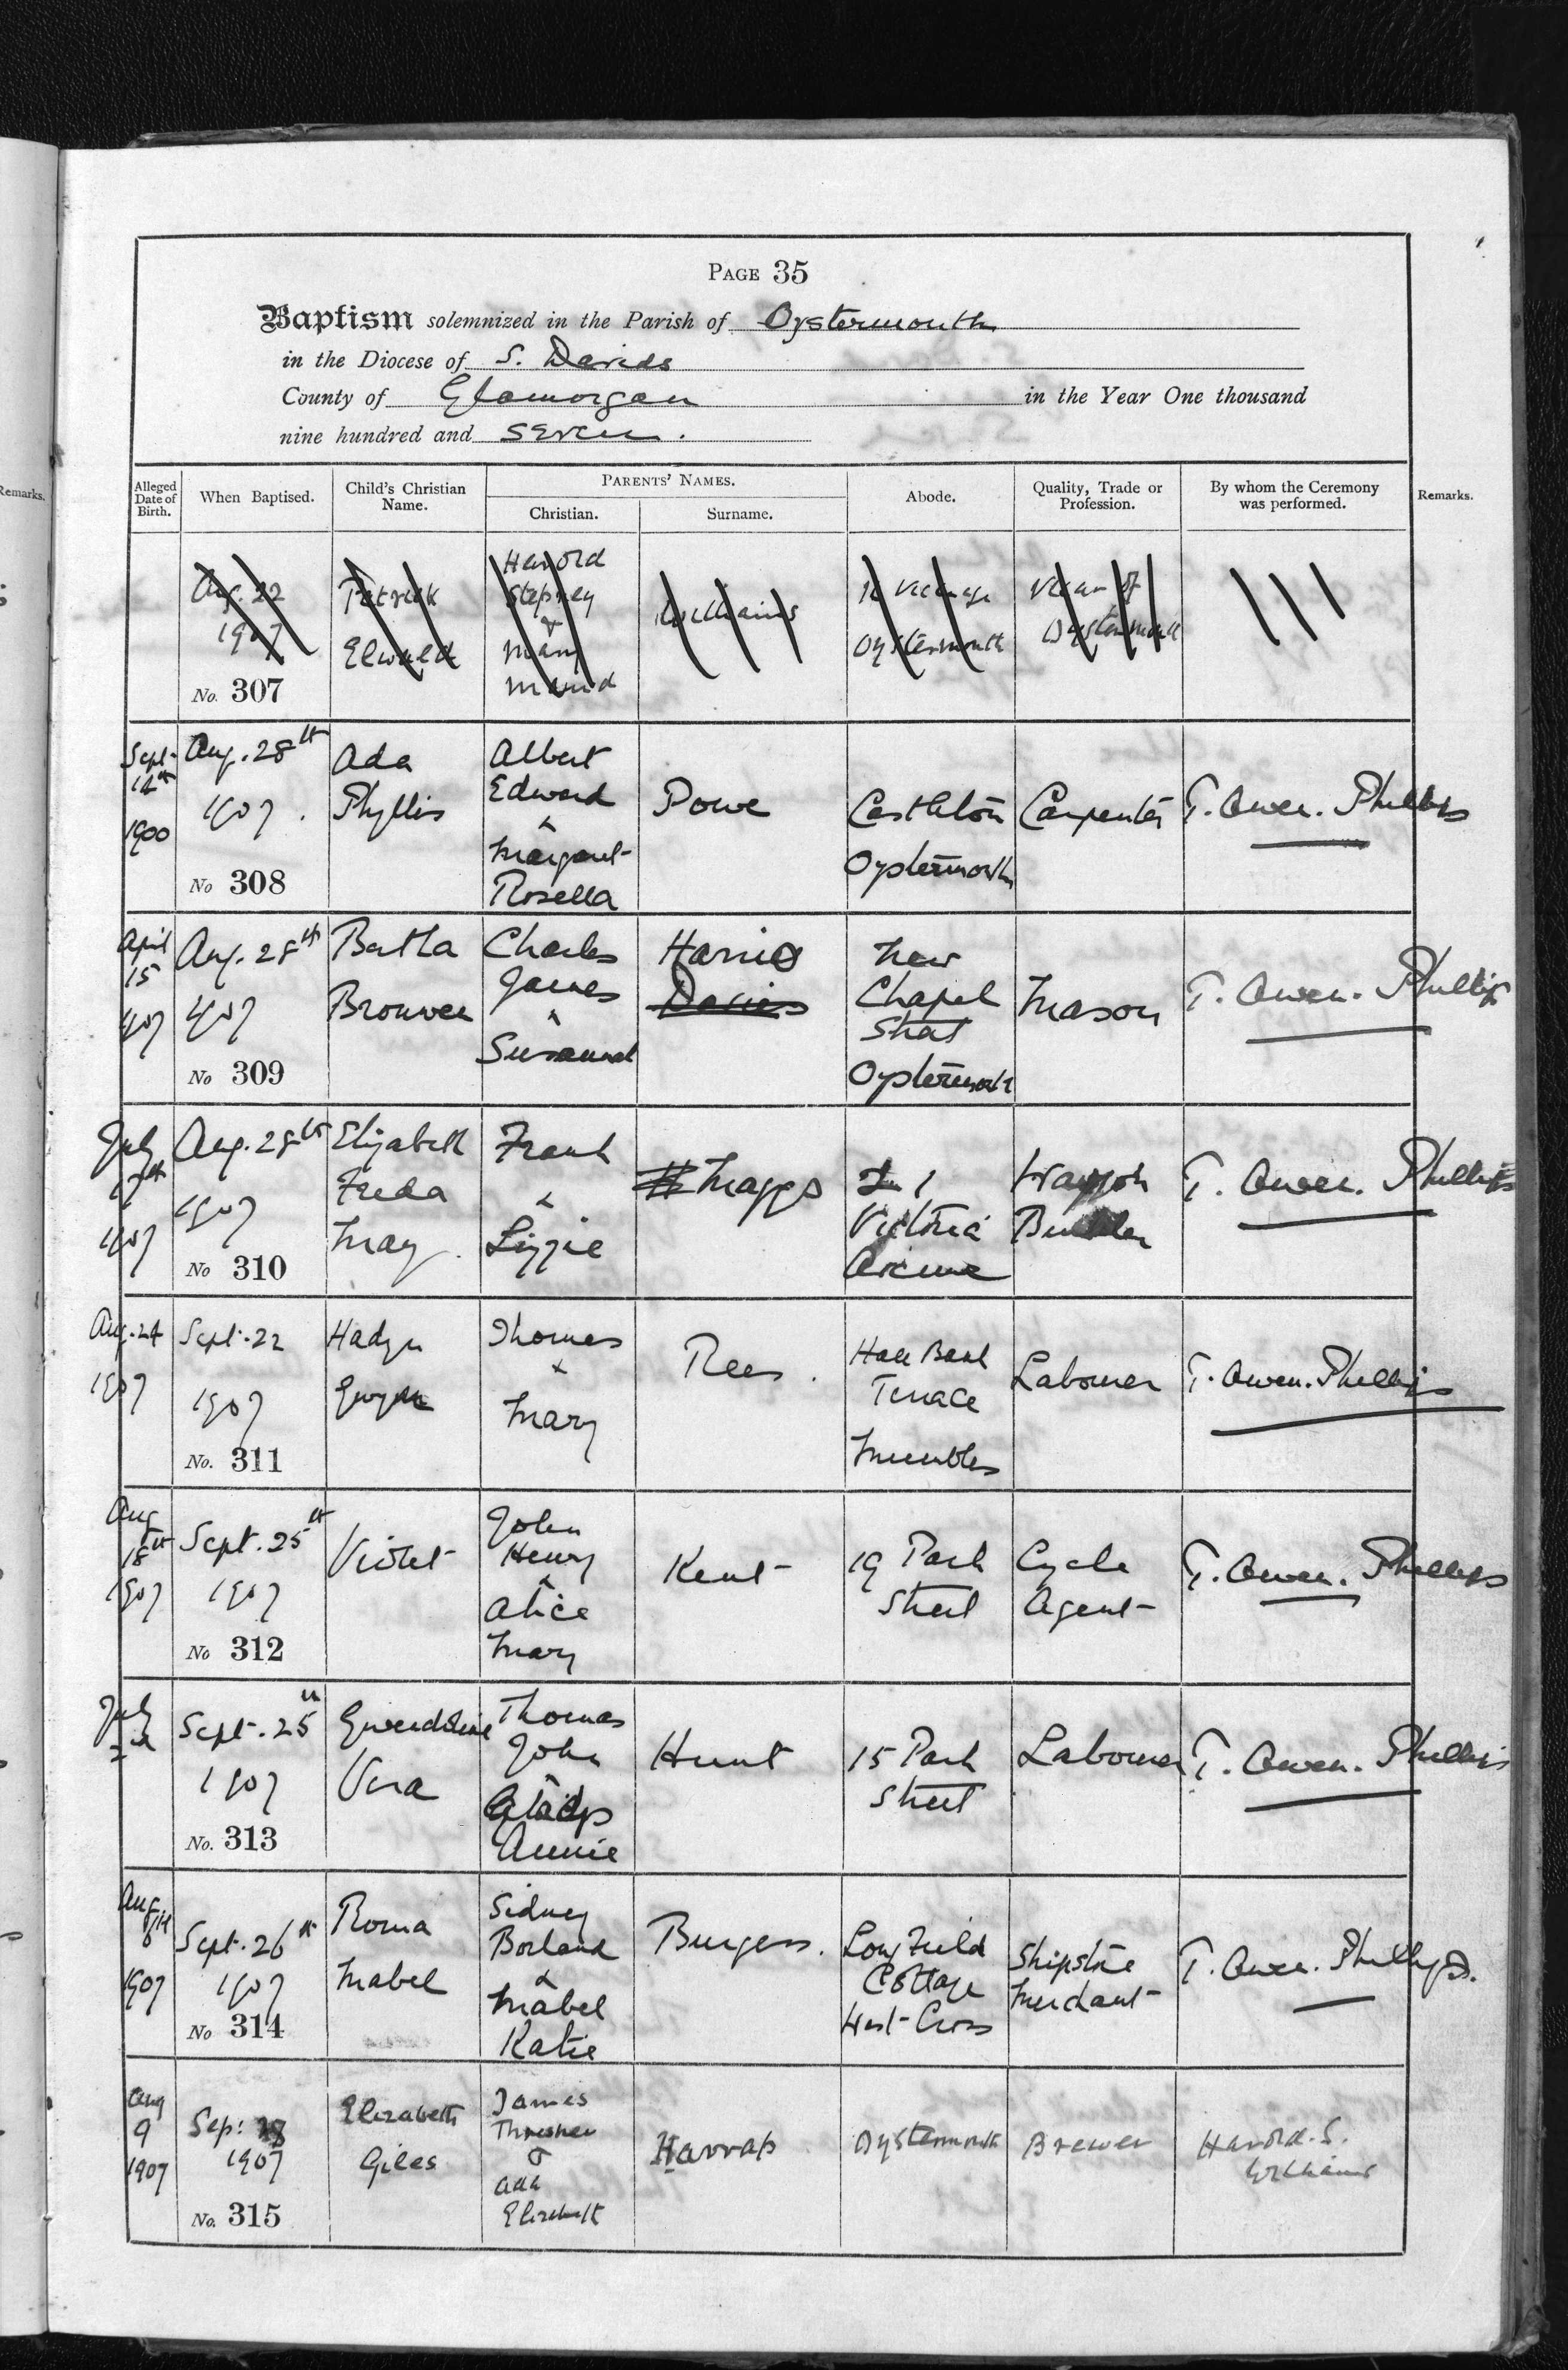 PAGE 35
Baptism solemnized in the Parish of Oystermouth
in the Diocese of S. Davids
County of Glamorgan in the Year One thousand
nine hundred and seven.
Remarks.
Alleged Date of Birth.
When Baptised.
Child's Christian Name.
PARENTS' NAMES.
Christian.
Surname.
Abode.
Quality, Trade or Profession.
By whom the Ceremony was performed.
Remarks.
Aug. 22
1907
No. 307
Patrick
Elwald
Harold
Stepney
&
Mary
Maud
Williams
Vicarage
Oystermouth
Vicar of
Oystermouth
Sept
14th
1900
Aug. 28th
1907.
No 308
Ada
Phyllis
Albert
Edward
&
Margaret
Rosella
Powe
Castleton
Oystermouth
Carpenter
T. Owen. Phillips
April
15
1907
Aug. 28th
1907
No 309
Bertha
Bronwen
Charles
James
&
Susannah
Harris
Davies
New
Chapel
Street
Oystermouth
Mason
T. Owen. Phillips
July
17th
1907
Aug. 28th
1907
No 310
Elizabeth
Freda
May
Frank
&
Lizzie
Maggs
1
Victoria
Avenue
Waggon
Builder
T. Owen. Phillips
Aug. 24
1907
Sept. 22
1907
No. 311
Hadyn
Gwyn
Thomas
&
Mary
Rees
Hall Bank
Terrace
Mumbles
Labourer
T. Owen. Phillips
Aug
18th
1907
Sept. 25th
1907
No 312
Violet
John
Henry
&
Alice
Mary
Kent
19 Park
Street
Cycle
Agent
T. Owen. Phillips
July
Sept. 25th
1907
No. 313
Gwendoline
Vera
Thomas
John
&
Gladys
Annie
Hunt
15 Park
Street
Labourer
T. Owen. Phillips
Aug
1907
Sept. 26th
1907
No 314
Roma
Mabel
Sidney
Borland
&
Mabel
Katie
Burgess.
Longfield
Cottage
West Cross
Shipstore
Merchant
T. Owen. Phillips.
Aug
9
1907
Sep: 28
1907
No. 315
Elizabeth
Giles
James
Thresher
&
Ada
Elizabeth
Harrap
Oystermouth
Brewer
Harold. S.
Williams